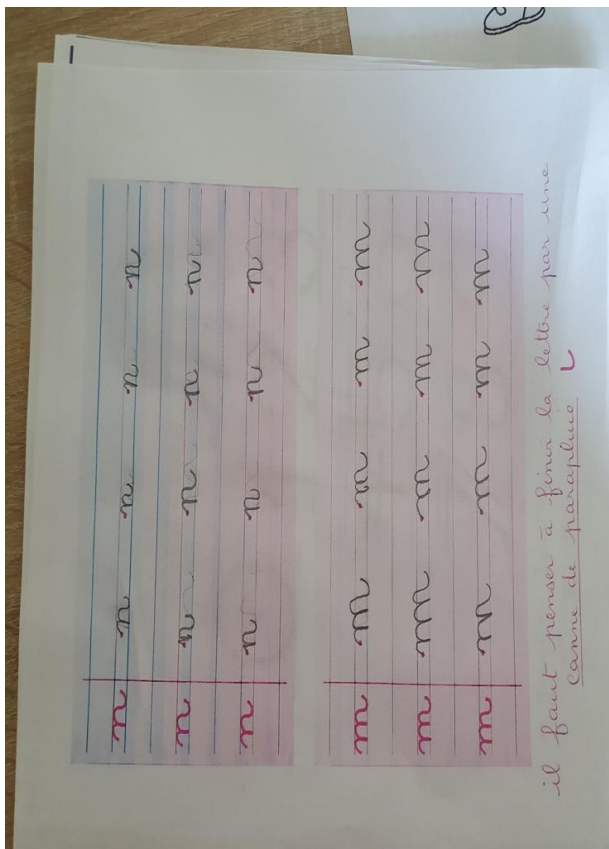 n n n n n
n n n n n
n n n n n
m m m m m
m m m m m
m m m m m
il faut penser à finir la lettre par une
canne de parapluie